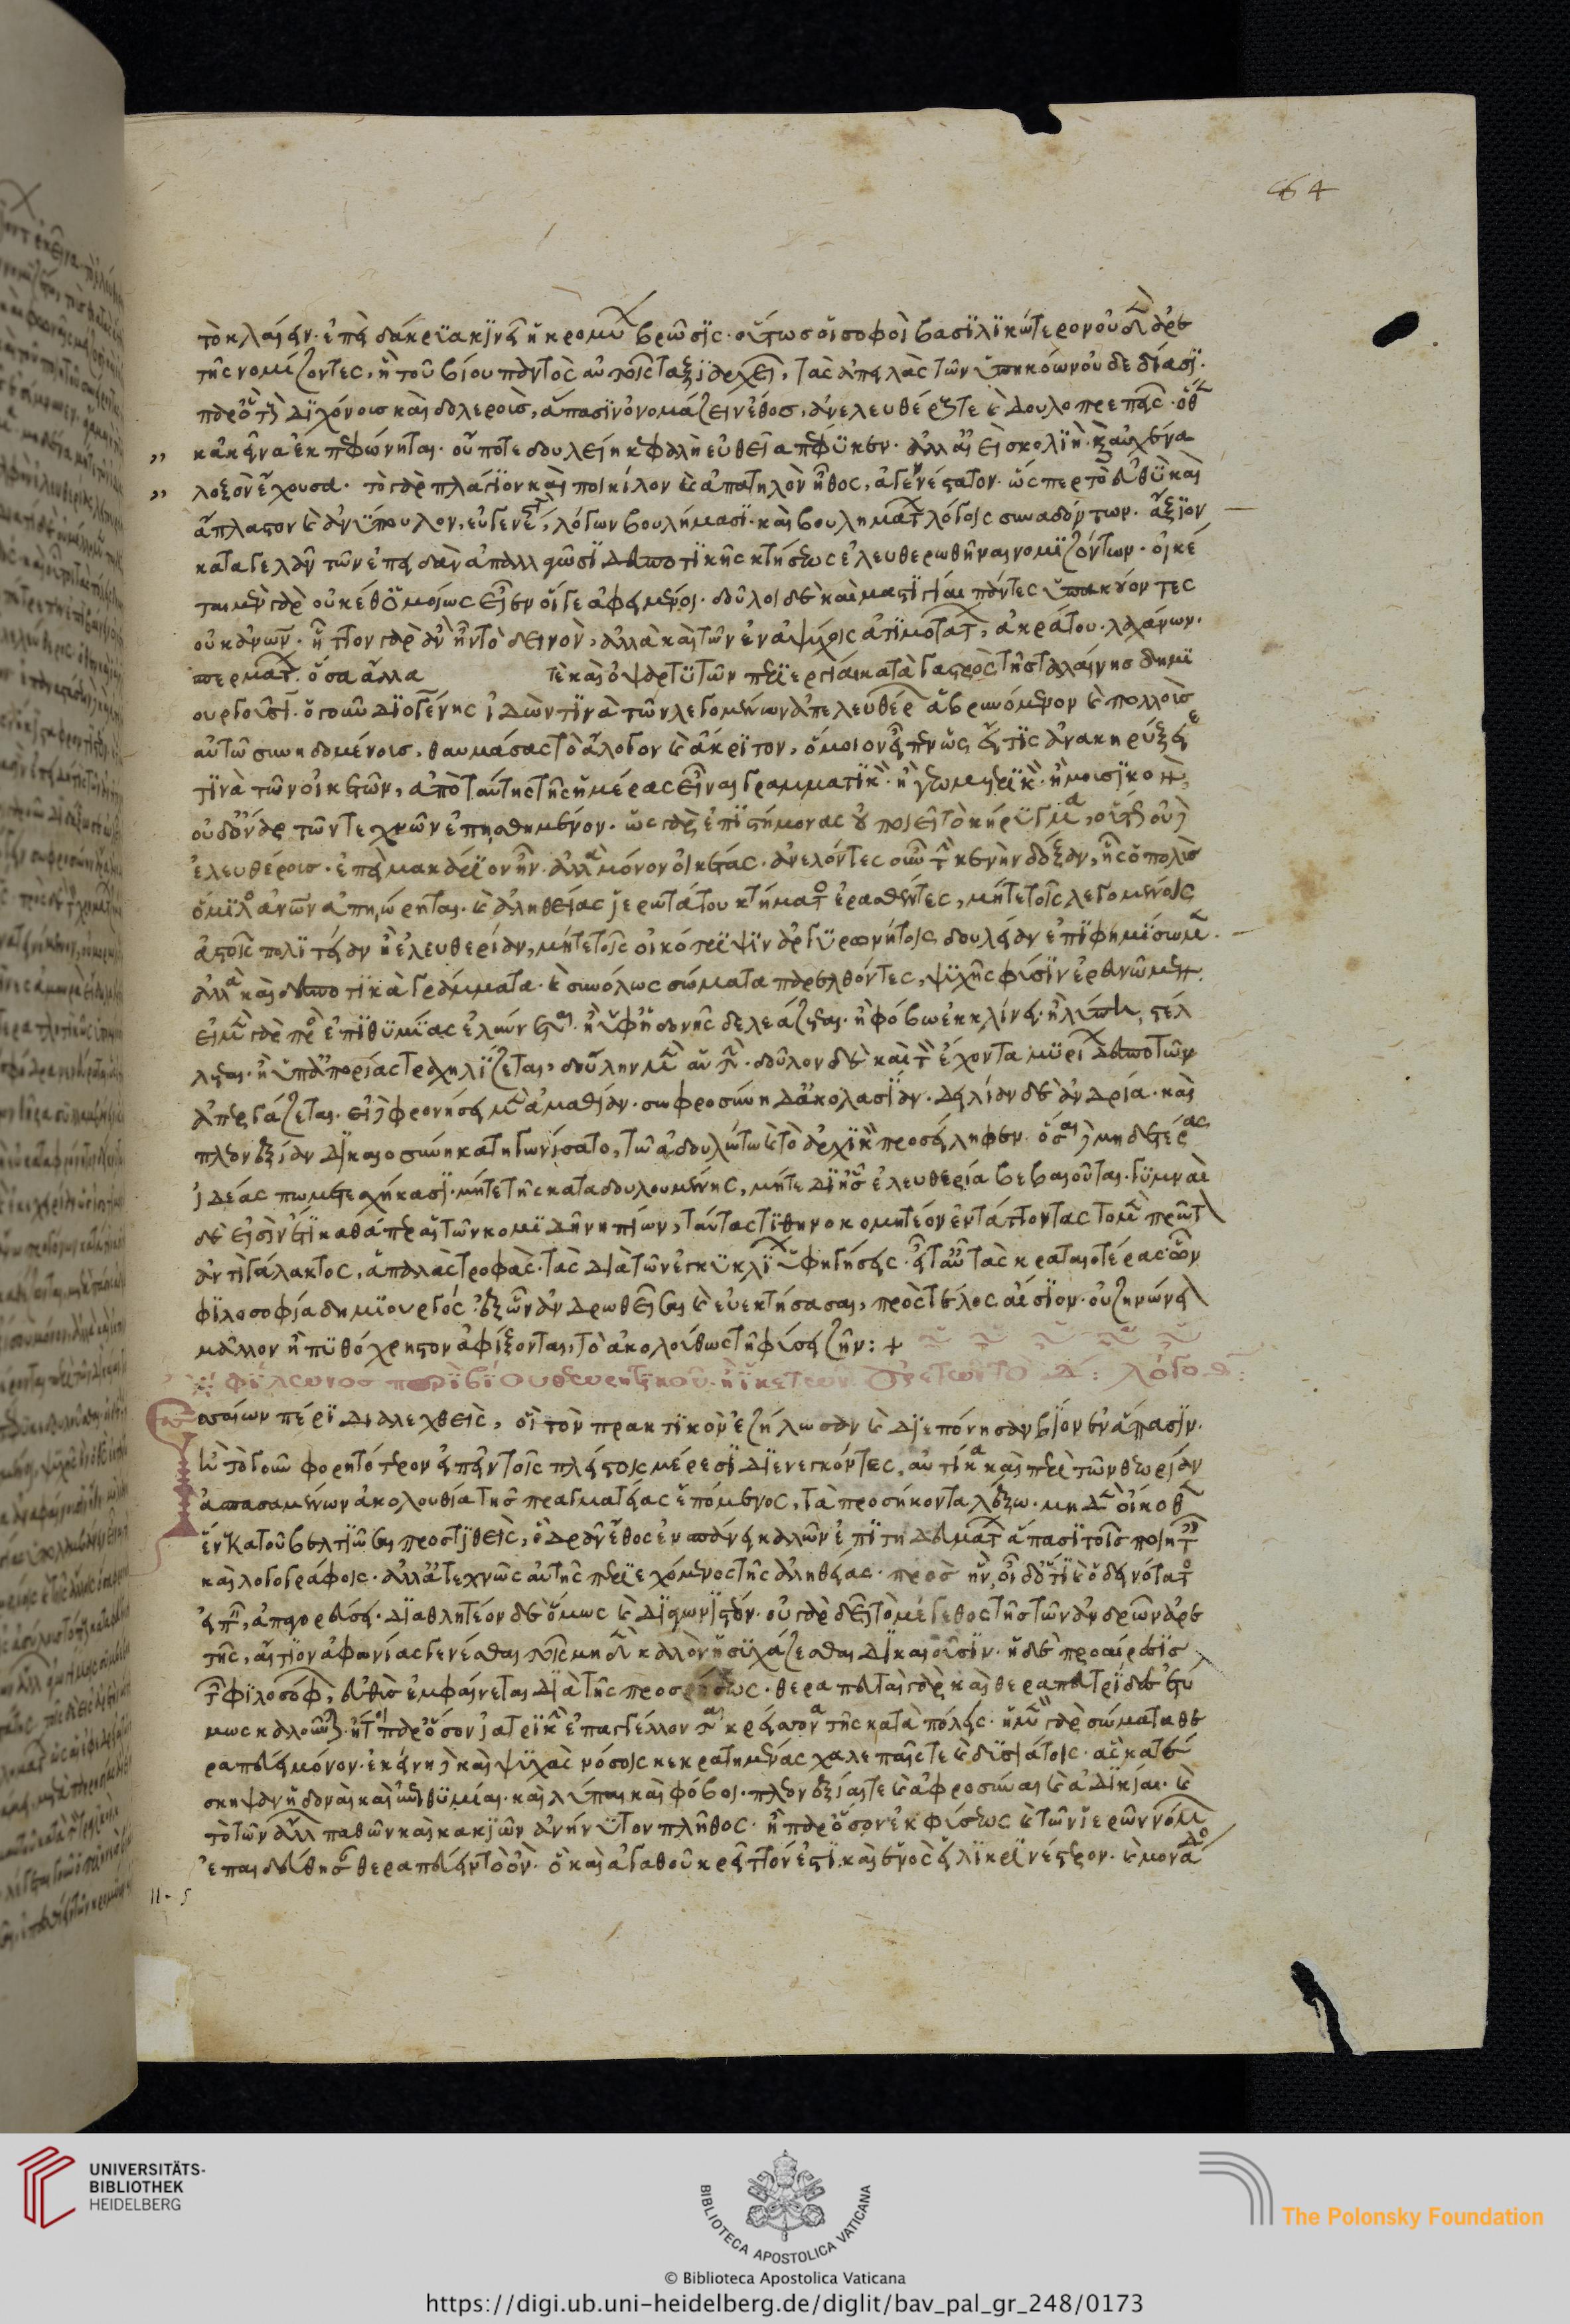 64
τὸ κλαίειν· ἐπεὶ δάκρυα κινεῖ ἡ κρομύου βρῶσις· οὕτως οἱ σοφοὶ βασιλικώτερον οὐδὲν ἀρε
τῆς νομίζοντες, ἣ τοῦ βίου παντὸς αὐτοῖς ταξιαρχεῖ, τὰς ἀπειλὰς τῶν ὑπηκόων οὐ δεδίασι·
παρὸ καὶ διχόνοις καὶ δολεροῖς, ἅπασιν ὀνομάζειν ἔθος, ἀνελευθέρους τε καὶ δουλοπρεπεῖς· ὅθεν
κἀκεῖνα ἐκπεφώνηται· οὔποτε δουλείη κεφαλὴ εὐθεῖα πέφυκεν· ἀλλ' αἰεὶ σκολιὴ· καὐχένα
λοξὸν ἔχουσα· τὸ γὰρ πλάγιον καὶ ποικίλον καὶ ἀπατηλὸν ἦθος, ἀγενέστατον· ὥσπερ τὸ εὐθὺ καὶ
ἄπλαστον καὶ ἀνύπουλον, εὐγενὲς, λόγων βουλήμασι· καὶ βουλημάτων λόγοις συναδόντων· ἄξιον
καταγελᾶν τῶν ἐπειδὰν ἀπαλλαγῶσι δεσποτικῆς κτήσεως ἐλευθερωθῆναι νομιζόντων· οἰκέ
ται μὲν γὰρ οὐκέθ' ὁμοίως εἶεν οἵ γε ἀφειμένοι· δοῦλοι δὲ καὶ μαστιγίαι πάντες ὑπακούοντες
οὐκ ἀνθρώπων· ἧττον γὰρ ἂν ἦν τὸ δεινὸν, ἀλλὰ καὶ τῶν ἐν ἀψύχοις ἀτιμοτάτων, ἀκράτου· λαχάνων·
περμάτων· ὅσα ἄλλα τε καὶ ὀψαρτυτῶν περιεργίαι κατὰ γαστρὸς τῆς ταλαίνης δημι
ουργοῦσι· ὁ γοῦν διογένης ἰδὼν τινὰ τῶν λεγομένων ἀπελευθέρων ἁβρυνόμενον καὶ πολλοὺς
αὐτῶ συνηδομένους, θαυμάσας τὸ ἄλογον καὶ ἄκριτον, ὅμοιον εἶπεν ὡς εἴ τις ἀνακηρύξειε
τινὰ τῶν οἰκετῶν, ἀπὸ ταύτης τῆς ἡμέρας εἶναι γραμματικὸν· ἢ γεωμετρικὸν· ἢ μουσικὸν,
οὐδ' ὄναρ τῶν τεχνῶν ἐπησθημένον· ὡς γὰρ ἐπιστήμονας οὐ ποιεῖ τὸ κήρυγμα, οὕτως οὐδὲ
ἐλευθέρους· ἐπεὶ μακάριον ἦν· ἀλλὰ μόνον οἰκέτας· ἀνελόντες οὖν τὴν κενὴν δόξαν, ἧς ὁ πολὺς
ὅμιλος ἀνθρώπων ἀπηώρηται· καὶ ἀληθείας ἱερωτάτου κτήματος ἐρασθέντες, μήτε τοῖς λεγομένοις
ἀστοῖς πολιτείαν ἢ ἐλευθερίαν, μήτε τοῖς οἰκότριψιν ἀργυρωνήτοις δουλείαν ἐπιφημίσωμεν·
ἀλλὰ καὶ δεσποτικὰ γράμματα· καὶ συνόλως σώματα παρελθόντες, ψυχῆς φύσιν ἐρευνῶμεν·
εἰ μὲν γὰρ πρὸς ἐπιθυμίας ἐλαύνεται· ἢ ὑφ' ἡδονῆς δελεάζεται· ἢ φόβω ἐκκλίνει· ἢ λύπη στέλ
λεται· ἢ ὑπ' ἀπορίας τραχηλίζεται, δούλην μὲν αὑτὴν· δοῦλον δὲ καὶ τὸν ἔχοντα μυρίων δεσποτῶν
ἀπεργάζεται· εἰ δὲ φρονήσει μὲν ἀμαθίαν· σωφροσύνη δ' ἀκολασίαν· δειλίαν δὲ ἀνδρία· καὶ
πλεονεξίαν δικαιοσύνη κατηγωνίσατο, τῶ ἀδουλώτω καὶ τὸ ἀρχικὸν προσείληφεν· ὅσαι δὲ μηδετέρας
ἰδέας πω μετεσχήκασι· μήτε τῆς καταδουλουμένης, μήτε δι' ἧς ἐλευθερία βεβαιοῦται· γυμναὶ
δὲ εἰσὶν ἔτι καθάπερ αἱ τῶν κομιδῆ νηπίων, ταύτας τιθηνοκομητέον ἐντάττοντας τὸ μὲν πρῶτον
ἀντὶ γάλακτος, ἁπαλὰς τροφὰς· τὰς διὰ τῶν ἐγκυκλίων ὑφηγήσεις· εἶτ' αὖ τὰς κραταιοτέρας ὧν
φιλοσοφία δημιουργός· ἐξ ὧν ἀνδρωθεῖσαι καὶ εὐεκτήσασαι, πρὸς τέλος αἴσιον· οὐ ζηνώνει
μᾶλλον ἢ πυθόχρηστον ἀφίξονται, τὸ ἀκολούθως τῆ φύσει ζῆν: +
Φίλωνος περὶ βίου θεωρητικοῦ· ἢ ἱκετῶν ἀρετῶν τὸ Δ: λόγος
Ἐσσαίων πέρι διαλεχθεὶς, οἳ τὸν πρακτικὸν ἐζήλωσαν καὶ διεπόνησαν βίον ἐν ἅπασιν·
ἢ τὸ γοῦν φορητότερον εἰπεῖν τοῖς πλείστοις μέρεσι διενεγκόντες, αὐτίκα καὶ περὶ τῶν θεωρίαν
ἀσπασαμένων ἀκολουθία τῆς πραγματείας ἑπόμενος, τὰ προσήκοντα λέξω· μηδὲν οἴκοθεν
ἕνεκα τοῦ βελτιῶσαι προστιθεὶς, ὃ δρᾶν ἔθος ἐν σπάνει καλῶν ἐπιτηδευμάτων ἅπασι τοῖς ποιηταῖς
καὶ λογογράφοις· ἀλλ' ἀτεχνῶς αὐτῆς περιεχόμενος τῆς ἀληθείας· πρὸς ἣν, οἶδ' ὅτι καὶ ὁ δεινότατος
εἰπεῖν, ἀπαγορεύσει· διαθλητέον δὲ ὅμως καὶ διαγωνιστέον· οὐ γὰρ δεῖ τὸ μέγεθος τῆς τῶν ἀνδρῶν ἀρε
τῆς, αἴτιον ἀφωνίας γενέσθαι τοῖς μηδὲν καλὸν ἡσυχάζεσθαι δικαιοῦσιν· ἡ δὲ προαίρεσις
τῶν φιλοσόφων, εὐθὺς ἐμφαίνεται διὰ τῆς προσρήσεως· θεραπευταὶ γὰρ καὶ θεραπευτρίδες ἐτύ
μως καλοῦνται· ἤτοι παρόσον ἰατρικὴν ἐπαγγέλλονται κρείσσονα τῆς κατὰ πόλεις· ἡ μὲν γὰρ σώματα θε
ραπεύει μόνον· ἐκείνη δὲ καὶ ψυχὰς νόσοις κεκρατημένας χαλεπαῖς τε καὶ δυσιάτοις· ἃς κατέ
σκηψαν ἡδοναὶ καὶ ἐπιθυμίαι· καὶ λύπαι καὶ φόβοι· πλεονεξίαι τε καὶ ἀφροσύναι καὶ ἀδικίαι· καὶ
τὸ τῶν ἄλλων παθῶν καὶ κακιῶν ἀνήνυτον πλῆθος· ἢ παρόσον ἐκ φύσεως καὶ τῶν ἱερῶν νόμων
ἐπαιδεύθησαν θεραπεύειν τὸ ὄν· ὃ καὶ ἀγαθοῦ κρεῖττόν ἐστι καὶ ἑνὸς εἰλικρινέστερον· καὶ μονάδος
UNIVERSITÄTS-
BIBLIOTHEK
HEIDELBERG
BIBLIOTECA APOSTOLICA VATICANA
The Polonsky Foundation
© Biblioteca Apostolica Vaticana
https://digi.ub.uni-heidelberg.de/diglit/bav_pal_gr_248/0173